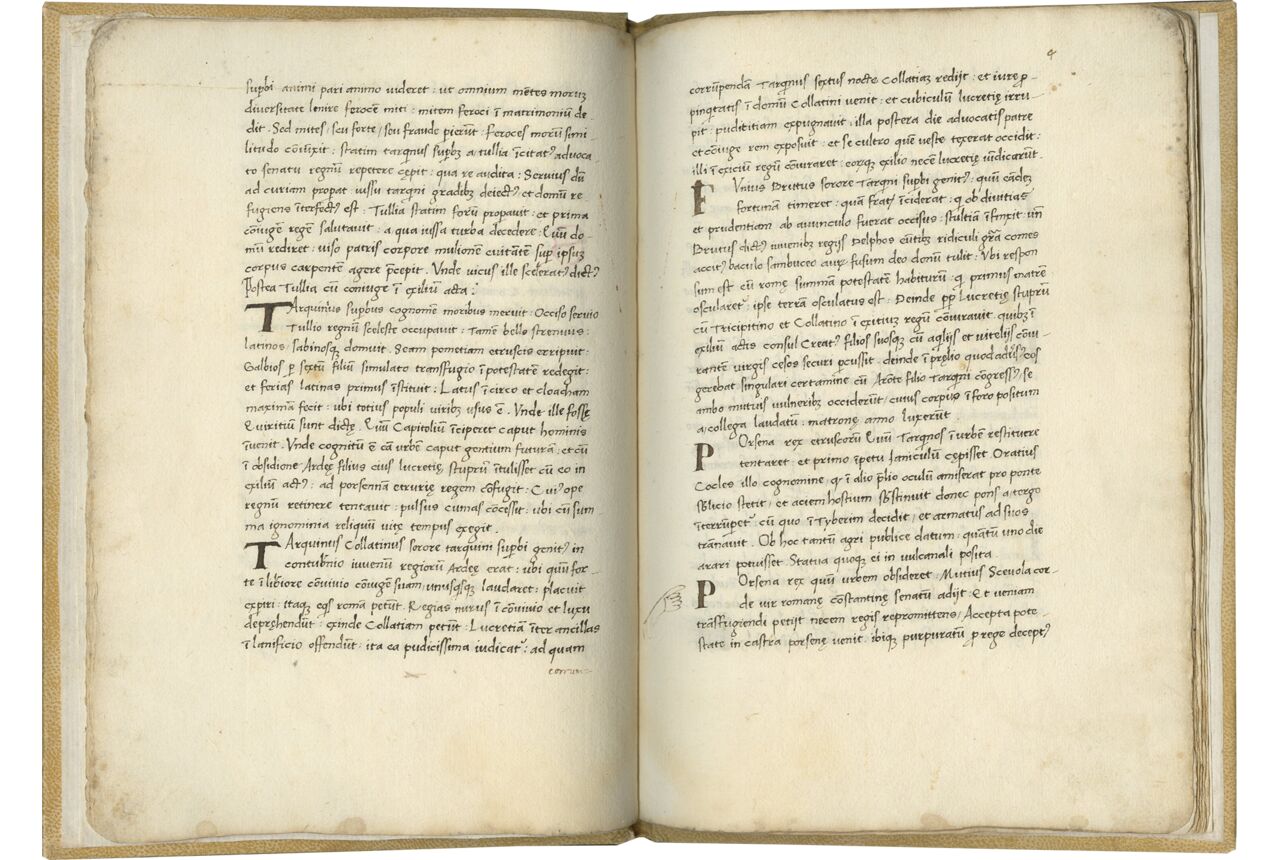 supbi animi pari animo videret : ut omnium mẽtes moruʒ
diversitate lenire ferocẽ miti : mitem feroci ĩ matrimoniũ de-
dit . Sed mites / seu forte / seu fraude pierũt . Feroces morũ simi-
litudo cõiũxit : statim tarqnus supbʒ a tullia ĩcitatꝰ advoca-
to senatu regnũ repetere cępit : qua re audita : Servius dũ
ad curiam propat : iussu tarqni gradibʒ deiectꝰ et domũ re
fugiens ĩterfectꝰ est . Tullia statim forũ propavit : et prima
cõiugẽ regẽ salutavit : a qua iussa turba decedere : Quũ do-
mũ rediret : viso patris corpore mulionẽ evitãtẽ sup ipsuʒ
corpus carpentũ agere pcepit . Unde vicus ille sceleratꝰ dictꝰ
Postea Tullia cũ coniuge ĩ exiliũ acta .
TArquinius supbus cognomẽ moribus meruit . Occiso servio
Tullio regnũ sceleste occupavit . Tamẽ bello strenuus :
latinos / sabinosqʒ domuit . Seam pometiam etruscis erripuit .
Gabios p sextũ filiũ simulato transfugio ĩ potestatẽ redegit :
et ferias latinas primus ĩstituit : Latus ĩ circo et cloacham
maximã fecit : ubi totius populi viribʒ usus ẽ . Unde ille fossę
Quiritiũ sunt dictę . Quũ Capitoliũ ĩciperet caput hominis
ĩvenit . Unde cognitũ ẽ eã urbẽ caput gentium futurã : et cũ
ĩ obsidione Ardeę filius eius lucretię stuprũ ĩtulisset cũ eo in
exiliũ actꝰ : ad porsennã etrurię regem cõfugit : Cuiꝰ ope
regnũ retinere tentavit : pulsus cumas cõcessit : ubi cũ sum-
ma ignominia reliquũ vitę tempus exegit .
TArquinius Collatinus sorore tarquini supbi genitꝰ in
contubnio iuvenũ regiorũ Ardeę erat : ubi quũ for-
te ĩ libiore convivio cõiugẽ suam / unusqsqʒ laudaret : placuit
expiri : itaqʒ eqs romã petũt . Regias nurus ĩ cõvivio et luxu
dephendũt : exinde Collatiam petũt : Lucretiam ĩter ancillas
ĩ lanificio offendũt : ita ea pudicissima iudicatꝰ : ad quam
corrum-
4
corrũpendã Tarqnus sextus nocte Collatiaʒ redijt : et iure p-
pinqtatis ĩ domũ Collatini venit : et cubiculũ lucretię irru-
pit : pudititiam expugnavit : illa postera die advocatis patre
et cõiuge rem exposuit : et se cultro quẽ veste texerat occidit :
illi ĩ exiciũ regũ cõiuraret : eorqʒ exilio necẽ lucretię vĩdicarũt .
Unius Brutus sorore Tarqni supbi genitꝰ : quũ eãdeʒ
fortunã timeret : quã fratꝰ ĩciderat : q ob divitias
et prudentiam ab avunculo fuerat occisus : stultiã ĩfinxit : uñ
Brutus dictꝰ iuvenibʒ regijs Delphos eũtibʒ ridiculi grã comes
accitꝰ baculo sambuceo auꝝ fusum deo domũ tulit : Ubi respon
sum est eũ romę summã potestatẽ habiturũ : q primus matrẽ
oscularetꝰ : ipse terrã osculatus est . Deinde pp Lucretię stuprũ
cũ Tricipitino et Collatino ĩ exitiuʒ regũ cõiuravit . quibʒ ĩ
exiliũ actis consul Creatꝰ filios suosqʒ cũ aqlijs et vitelijs cõiu-
rantẽ virgis cesos securi pcussit . deinde ĩ prelio quod adꝰsꝰ eos
gerebat singulari certamine cũ Arõte filio Tarqni cõgressꝰ / se
ambo mutuis vulneribʒ occiderũt / cuius corpus ĩ foro positum
a / collega laudatũ : matronę anno luxerũt
POrsena rex etruscorũ Quũ Tarqnos ĩ urbẽ restituere
tentaret . et primo ĩpetu Janiculũ cępisset . Oratius
Cocles illo cognomine . qꝰ ĩ alio plio oculũ amiserat pro ponte
sblicio stetit / et aciem hostium sbstinuit donec pons a tergo
ĩterrũpetꝰ cũ quo ĩ Tyberim decidit / et armatus ad suos
trãnavit . Ob hoc tantũ agri publice datum : quãtũ uno die
arari potuisset . Statua quoqʒ ei in vulcanali posita .
POrsena rex quũ urbem obsideret . Mutius Scevola cor-
de vir romanę cõstantinę senatũ adijt : Et veniam
trãsfugiendi petijt necem regis repromittens / Accepta pote-
state in castra porsenę venit . ibiqʒ purpuratũ p rege deceptꝰ